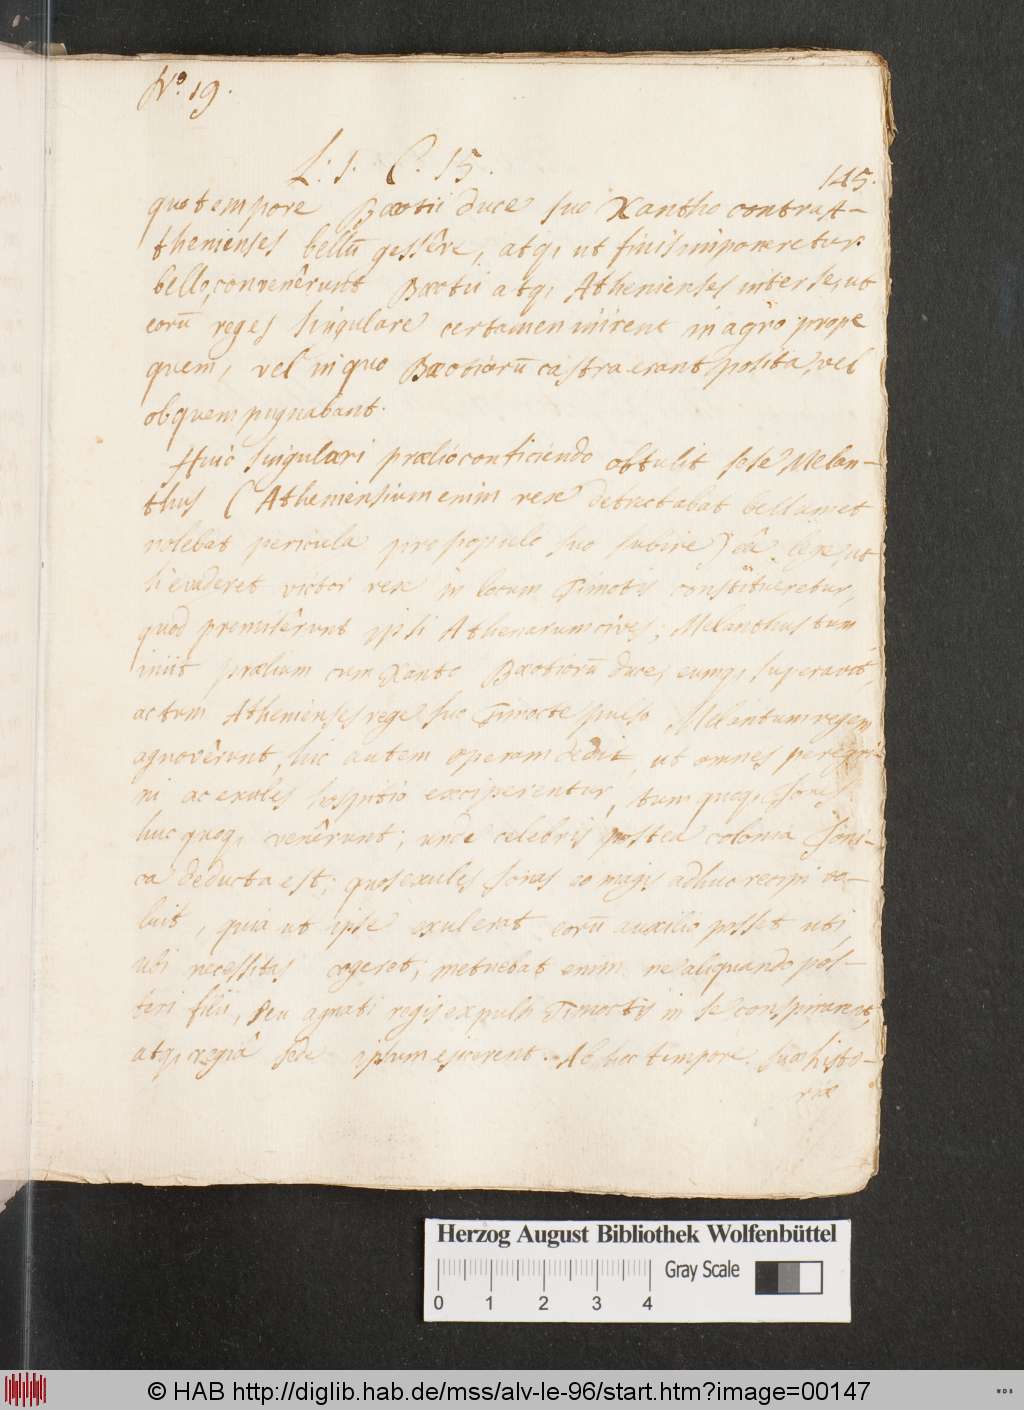 No. 19.
L: 1. C. 15.
145.
quo tempore Bœotii duce suo Xantho contra A-
thenienses bellū gessêre, atq, ut finis imponeretur
bello, convenêrunt Bœotii atq, Athenienses inter se, ut
eorū reges singulare certamen inirent in agro prope
quem, vel in quo Bœotiorū castra erant posita, vel
ob quem pugnabant.
Huic singulari prælio conficiendo obtulit sese Melan-
thus (Atheniensium enim rex detrectabat bellum et
nolebat pericula pro populo suo subire) eâ lege, ut
si evaderet victor rex in locum Timotis constitueretur,
quod promisêrunt ipsi Athenarum cives; Melanthus tum
iniit prælium cum Xanto Bœotiorū duce, eumq, superavit,
ac tum Athenienses rege suo Timocte pulso Melantum regem
agnovêrunt, hic autem operam dedit, ut omnes peregri-
ni ac exules hospitio exciperentur, tum quoq, Iones
huc quoq, venêrunt; unde celebris postea colonia Ioni-
ca deducta est; quos exules Ionas eo magis adhuc recipi vo-
luit, quia ut ipse exulerat eorū auxilio posset uti,
ubi necessitas cogeret; metuebat enim ne aliquando pós-
teri filii, seu agnati regis expulsi Timoctis in se conspirarent,
atq, regiâ sede ipsum ejicerent. Ab hoc tempore suæ histo-
riæ
Herzog August Bibliothek Wolfenbüttel
Gray Scale
0 1 2 3 4
© HAB http://diglib.hab.de/mss/alv-le-96/start.htm?image=00147